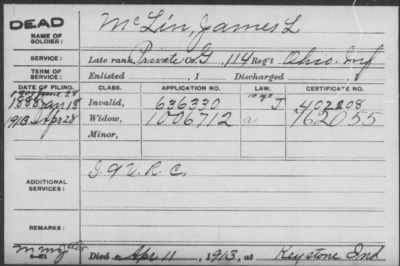 DEAD
McLin, James L
NAME OF SOLDIER:
SERVICE: Late rank, Private Co. G, 114 Reg't Ohio Inf
TERM OF SERVICE: Enlisted , 1 Discharged , 1
DATE OF FILING. CLASS. APPLICATION NO. LAW. CERTIFICATE NO.
1888 Jan 18 Invalid, 636330 J 402208
1913 Apr 28 Widow, 1006712 a 762055
Minor,
ADDITIONAL SERVICES: I 9 V.R.C.
REMARKS:
Died Apr 11, 1913, at Keystone Ind